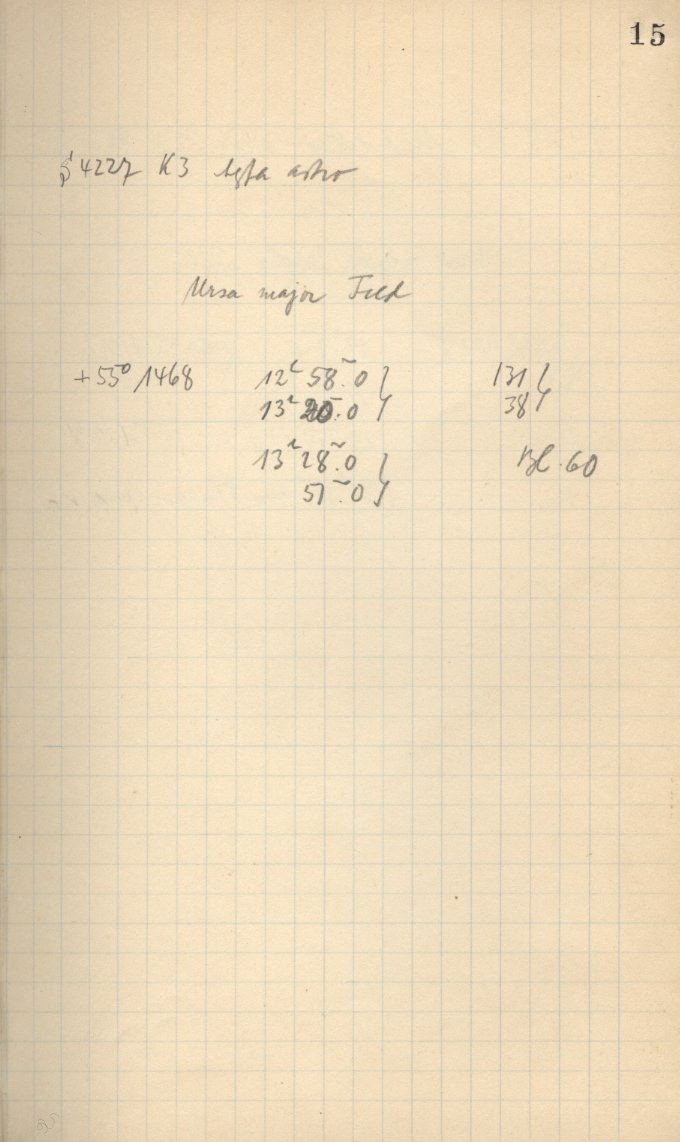 15
S 4227 K3 Agfa astro
Ursa major Feld
+55° 1468 12ʰ 58ᵐ.0 } 131 }
13ʰ 20ᵐ.0 } 38 }
13ʰ 28ᵐ.0 } Bl. 60
51ᵐ.0 }